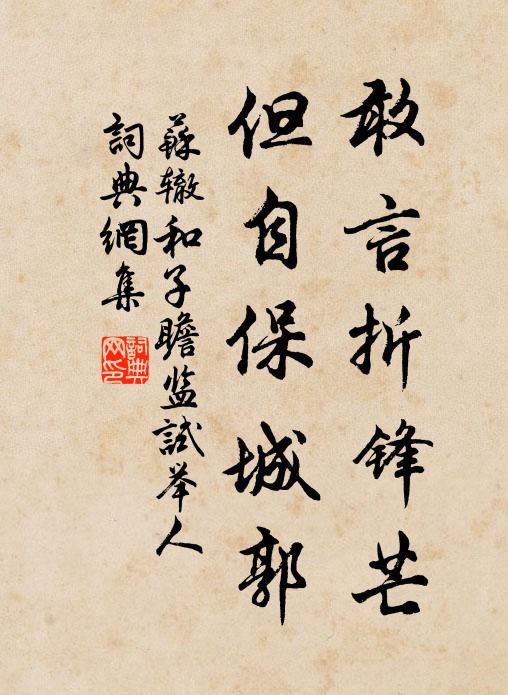 敢言折锋芒
但自保城郭
蘇辙和子瞻监試举人
詞典網集
詞典网印